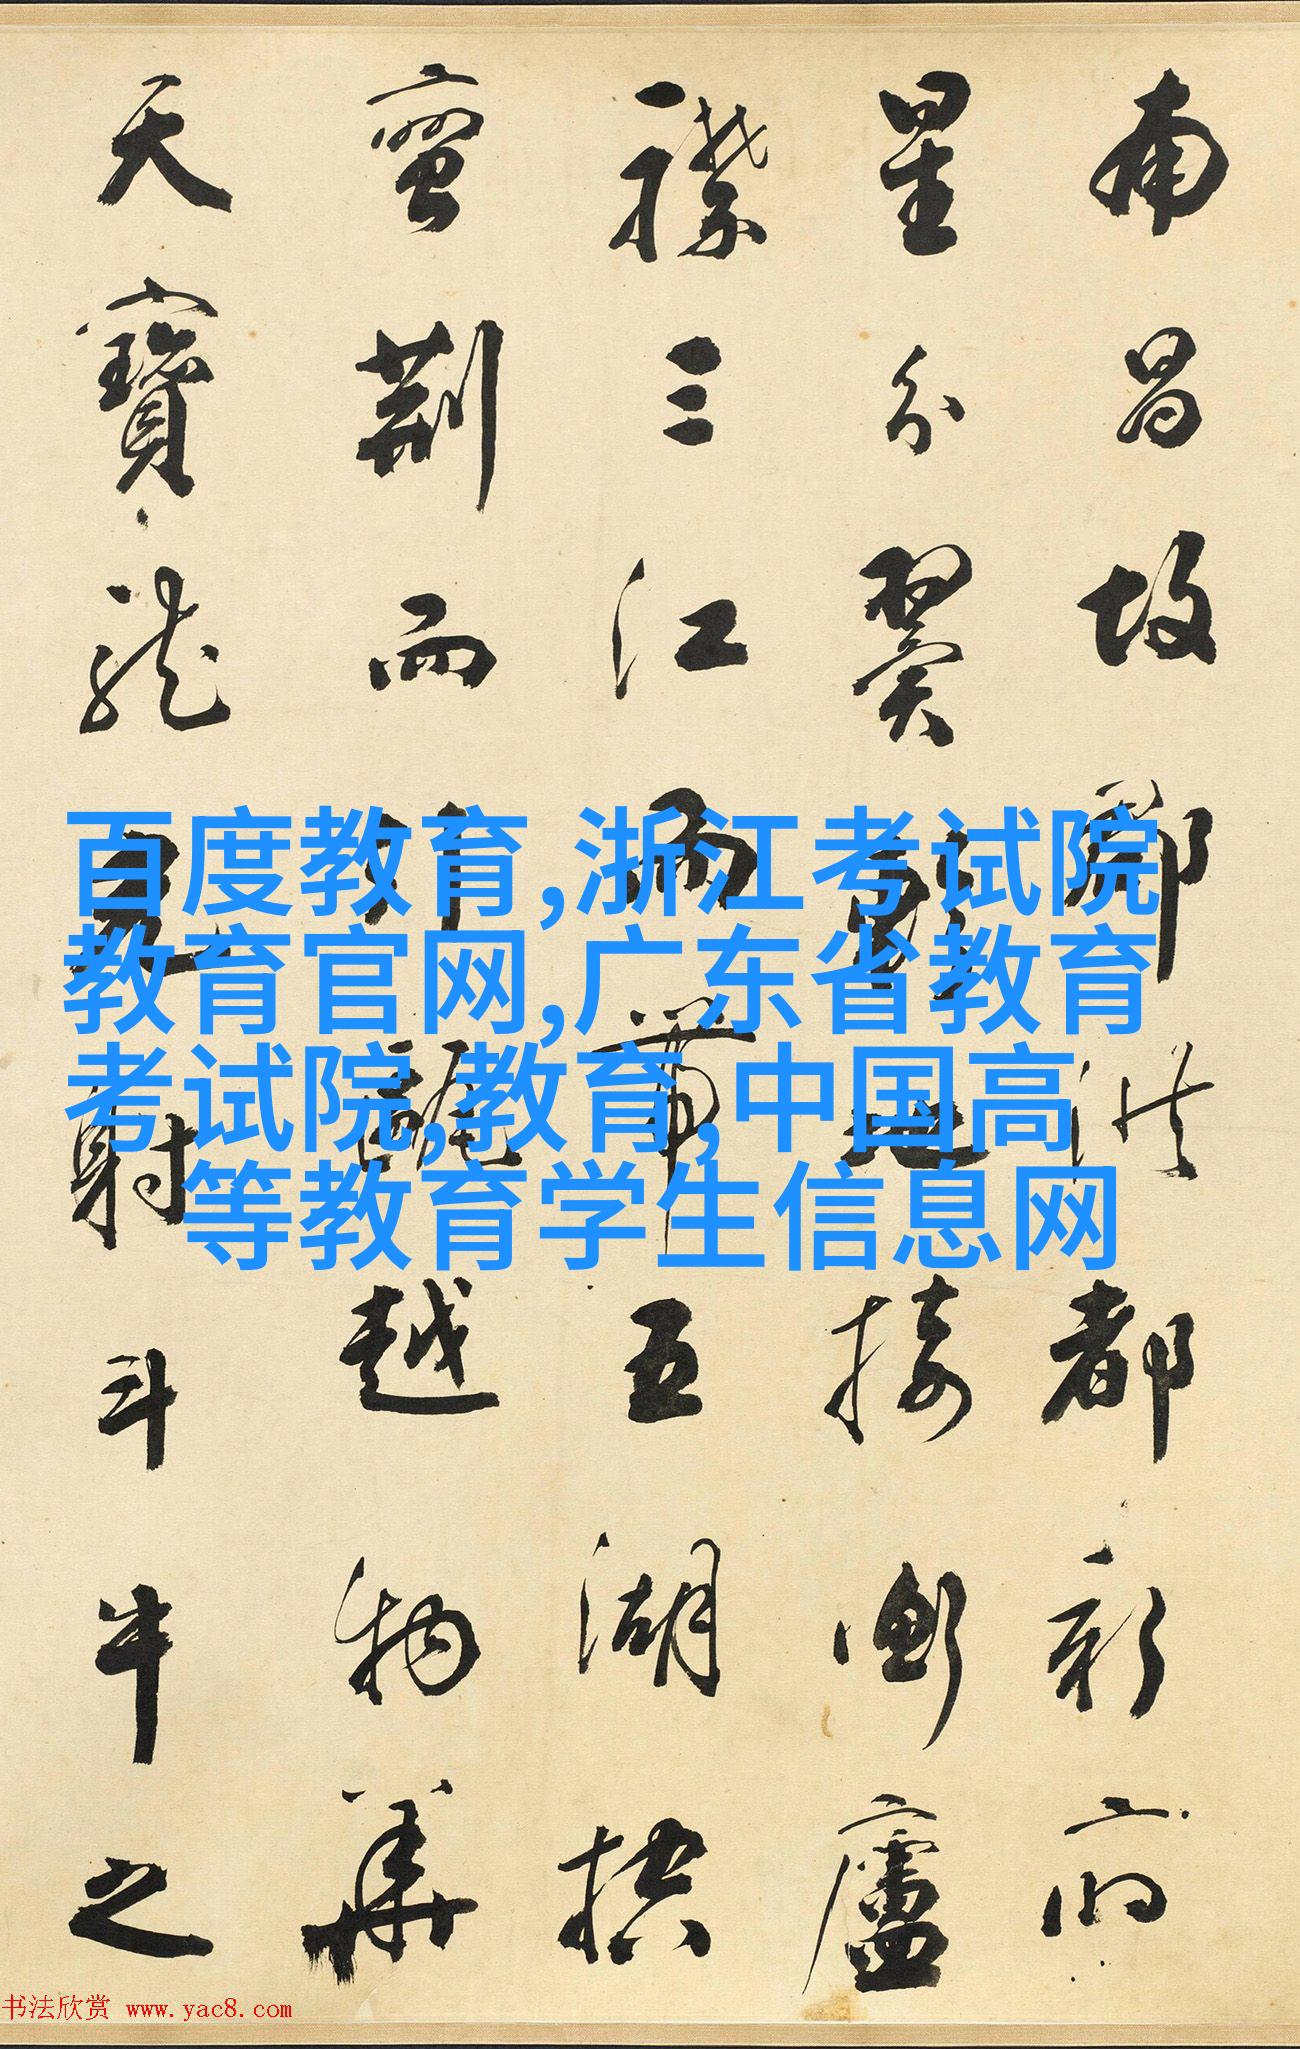 南昌故郡洪都新府
星分翼軫地接衡廬
襟三江而帶五湖控
蠻荆而引甌越物華
天寶龍光射斗牛之
百度教育,浙江考试院
教育官网,广东省教育
考试院,教育,中国高
等教育学生信息网
书法欣赏 www.yac8.com